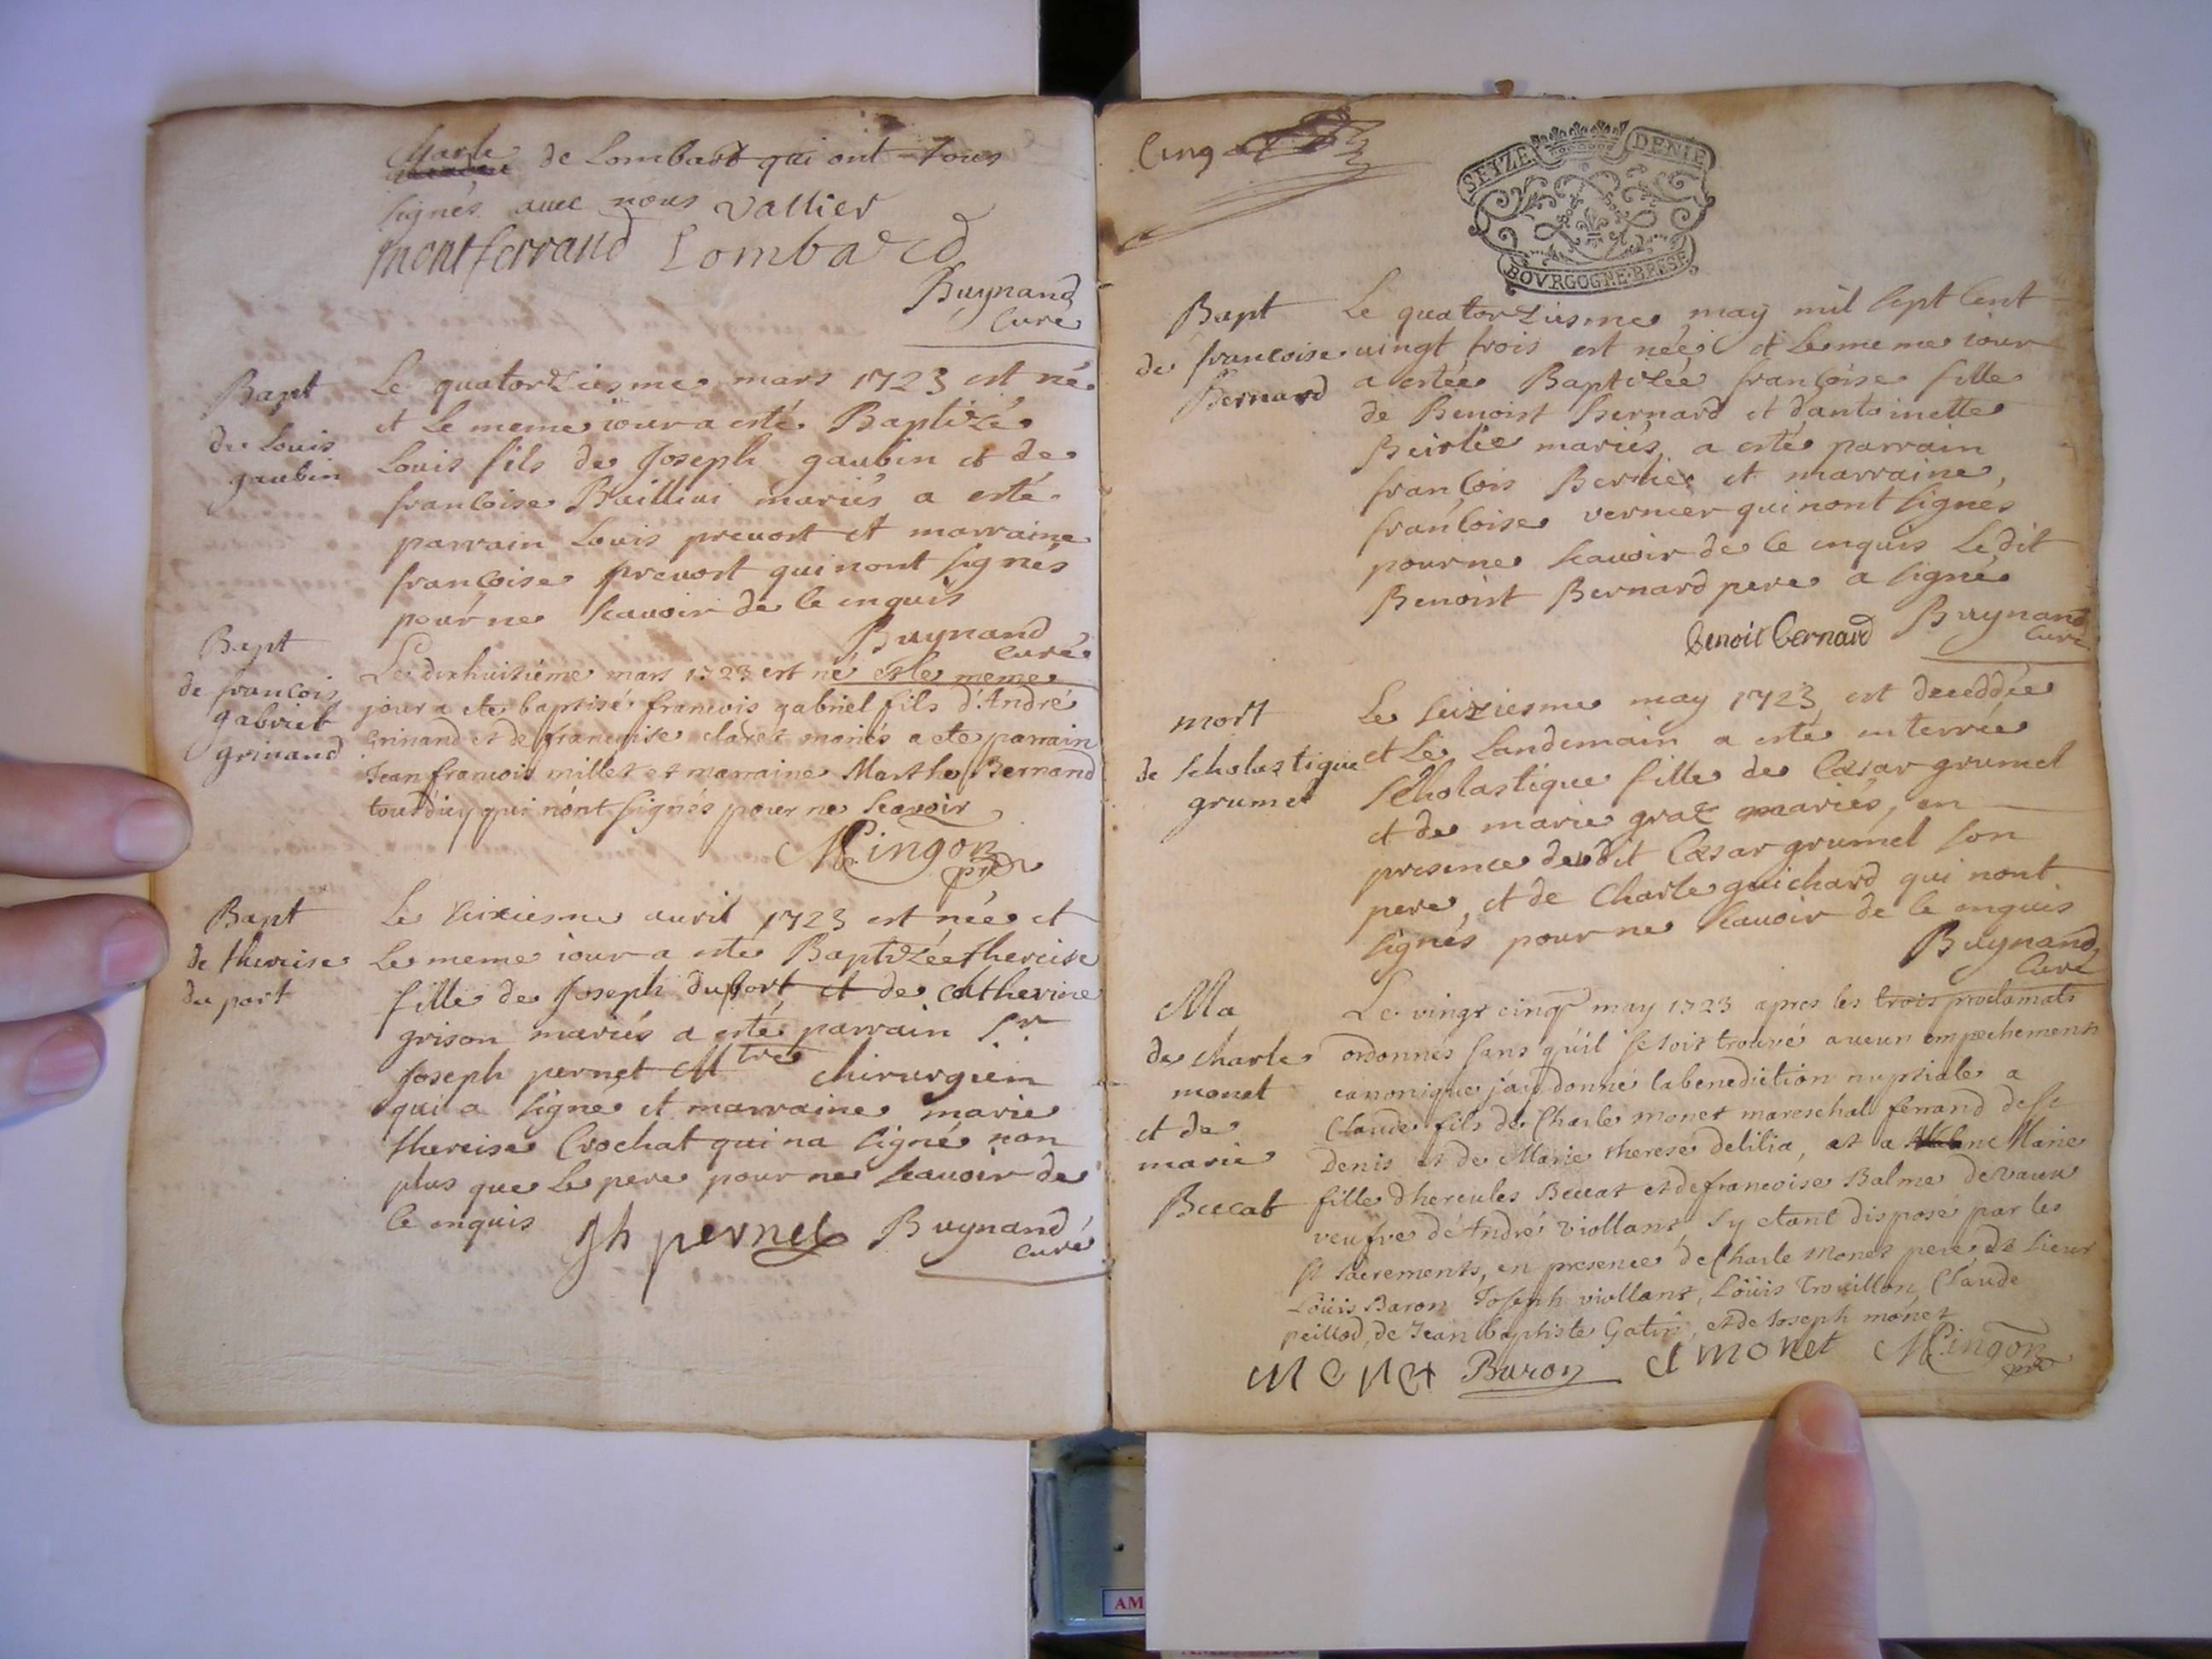 Charle de Lombard qui ont tous
signés auec nous Vallier
montferrand Lombard
Buynand
Curé
Bapt
de Louis
gaubin
Le quatorziesme mars 1723 est né
et Le meme iour a esté Baptizé
Louis fils de Joseph gaubin et de
francoise mariés a esté
parrain Louis preuost et marraine
francoise preuost qui nont signés
pour ne scauoir de ce enquis
Buynand
curé
Bapt
de francois
gabriel
grinand
Le dixhuitiéme mars 1723 est né et le meme
jour a ete baptisé francois gabriel fils d'André
Grinand et de francoise claret mariés a ete parrain
Jean francois millet et marraine Marthe Bernand
qui n'ont signés pour ne scavoir
Mingon
ptre
Bapt
de thereise
du port
Le seiziesme auril 1723 est née et
Le meme iour a esté Baptizée thereise
fille de Joseph duport et de Catherine
grison mariés a esté parrain Sr
Joseph pernet Mtre chirurgien
qui a signé et marraine marie
thereise Crochat qui na signé non
plus que Le pere pour ne scauoir de
ce enquis Jh pernet Buynand
curé
Cinq
SEIZE DENIE
BOVRGOGNE BRESSE
Bapt
de francoise
Bernard
Le quatorziesme may mil sept Cent
uingt trois est néé et Le meme iour
a estée Baptizéé francoise fille
de Benoist Bernard et dantoinette
mariés, a esté parrain
francois et marraine,
francoise vernier qui nont signés
pour ne scauoir de ce enquis Le dit
Benoist Bernard pere a signé
benoit bernard Buynand
Curé
mort
de scholastique
grumel
Le seiziesme may 1723 est deceddée
et Le Landemain a esté enterrée
scholastique fille de Cæsar grumel
et de marie graz mariés, en
presence dudit Cæsar grumel son
pere, et de Charle guichard qui nont
signés pour ne scauoir de ce enquis
Buynand
Curé
Ma
de charle
monet
et de
marie
Beccat
Le vingt cinq may 1723 apres les trois proclamats
ordonnés sans qu'il se soit trouvé aucun empechement
canonique j'ay donné la benediction nuptiale a
Claude fils de Charle monet mareschal ferrand de St
Denis et de Marie therese delilia, et a Marie
fille dhercules Beccat et de francoise Balme de vaux
veufve d'André viollant, s'y etant disposé par les
St sacrements, en presence de Charle Monet pere, de sieur
Loüis Baron Joseph viollant, Loüis Trouillon, Claude
peillod, de Jean Baptiste Gatin, et de Joseph monet
Monet Baron C monet Mingon
ptre
AM